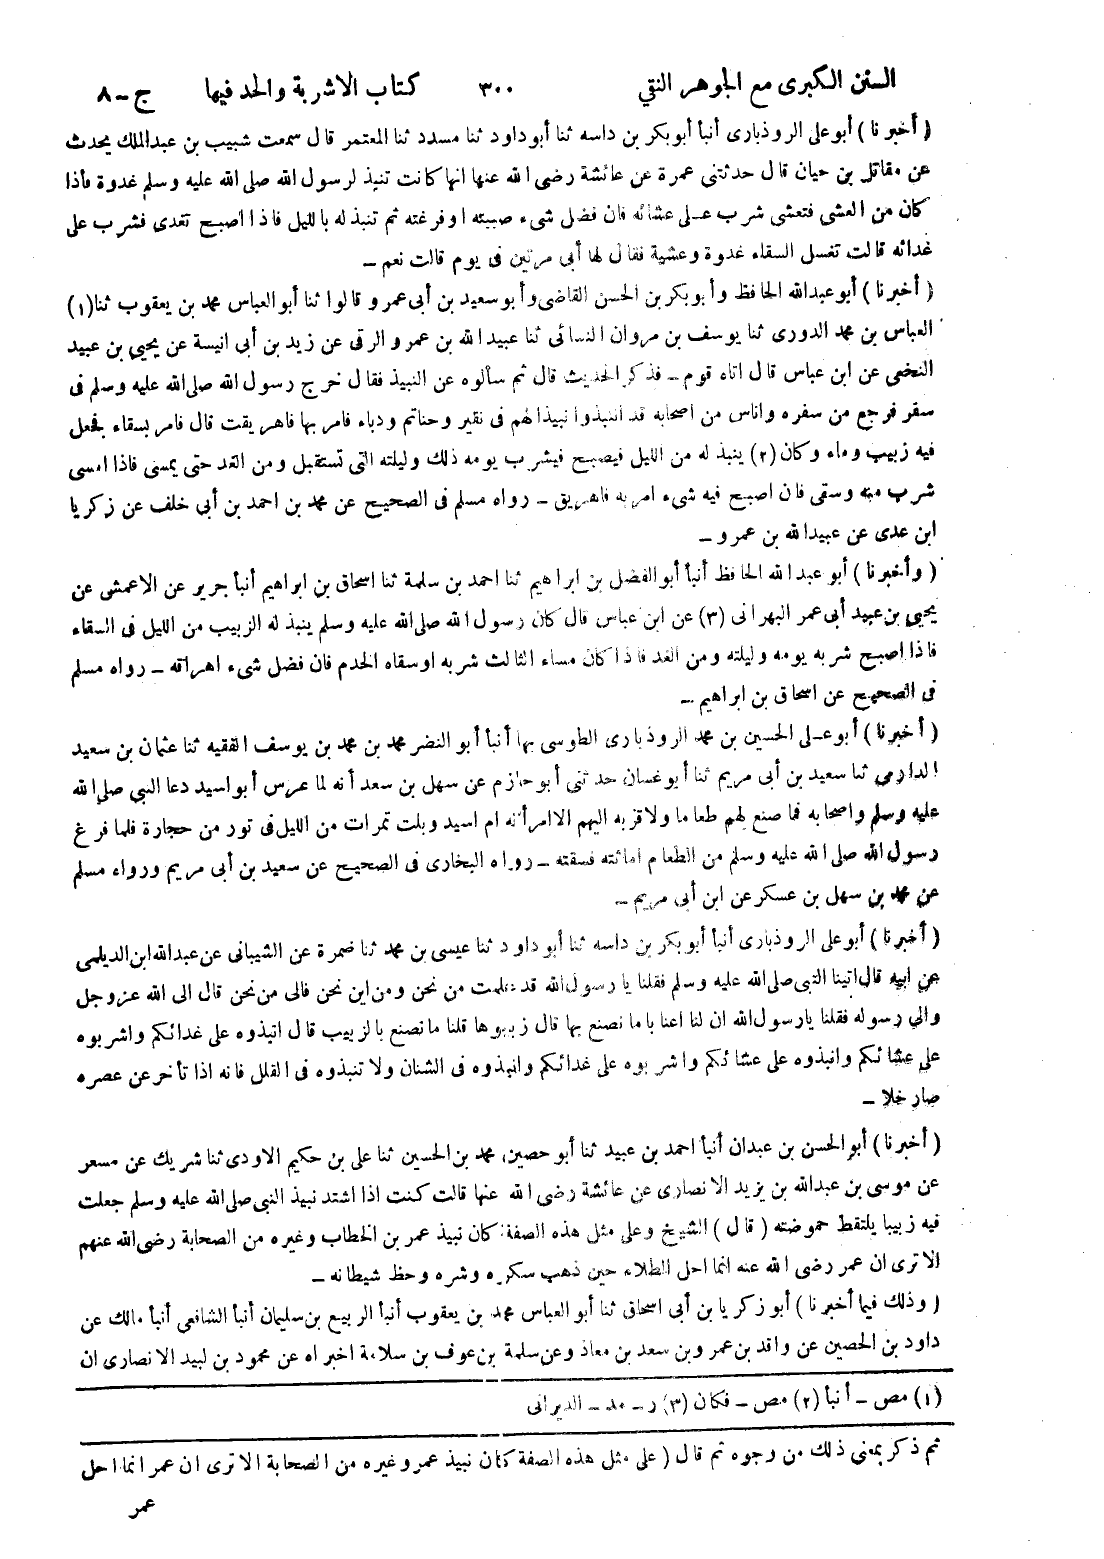 السنن الكبرى مع الجوهر النقي ٣٠٠ كتاب الاشربة والحد فيها ج-٨
(أخبرنا) أبو على الروذبارى أنبأ أبو بكر بن داسه ثنا أبو داود ثنا مسدد ثنا المعتمر قال سمعت شبيب بن عبد الملك يحدث
عن مقاتل بن حيان قال حدثتنى عمرة عن عائشة رضى الله عنها انها كانت تنبذ لرسول الله صلى الله عليه وسلم غدوة فاذا
كان من العشى فتعشى شرب على عشائه فان فضل شىء صببته او فرغته ثم تنبذ له بالليل فاذا اصبح تغدى فشرب على
غدائه قالت تغسل السقاء غدوة وعشية فقال لها أبى مرتين فى يوم قالت نعم -
(أخبرنا) أبو عبد الله الحافظ وأبو بكر بن الحسن القاضى وأبو سعيد بن أبى عمرو قالوا ثنا أبو العباس محمد بن يعقوب ثنا (١)
العباس بن محمد الدورى ثنا يوسف بن مروان النسائى ثنا عبيد الله بن عمرو الرقى عن زيد بن أبى انيسة عن يحيى بن عبيد
النخعى عن ابن عباس قال اتاه قوم - فذكر الحديث قال ثم سألوه عن النبيذ فقال خرج رسول الله صلى الله عليه وسلم فى
سفر فرجع من سفره واناس من اصحابه قد انتبذوا نبيذا لهم فى نقير وحناتم ودباء فامر بها فاهريقت قال فامر بسقاء فجعل
فيه زبيب وماء وكان (٢) ينبذ له من الليل فيصبح فيشرب يومه ذلك وليلته التى تستقبل ومن الغد حتى يمسى فاذا امسى
شرب منه وسقى فان اصبح فيه شىء امر به فاهريق - رواه مسلم فى الصحيح عن محمد بن احمد بن أبى خلف عن زكريا
ابن عدى عن عبيد الله بن عمرو -
(وأخبرنا) أبو عبد الله الحافظ أنبأ أبو الفضل بن ابراهيم ثنا احمد بن سلمة ثنا اسحاق بن ابراهيم أنبأ جرير عن الاعمش عن
يحيى بن عبيد أبى عمر البهرانى (٣) عن ابن عباس قال كان رسول الله صلى الله عليه وسلم ينبذ له الزبيب من الليل فى السقاء
فاذا اصبح شربه يومه وليلته ومن الغد فاذا كان مساء الثالث شربه او سقاه الخدم فان فضل شىء اهراقه - رواه مسلم
فى الصحيح عن اسحاق بن ابراهيم -
(أخبرنا) أبو على الحسين بن محمد الروذبارى الطوسى بها أنبأ أبو النضر محمد بن محمد بن يوسف الفقيه ثنا عثمان بن سعيد
الدارمى ثنا سعيد بن أبى مريم ثنا أبو غسان حدثنى أبو حازم عن سهل بن سعد أنه لما عرس أبو اسيد دعا النبي صلى الله
عليه وسلم واصحابه فما صنع لهم طعاما ولا قربه اليهم الا امرأته ام اسيد وبلت تمرات من الليل فى تور من حجارة فلما فرغ
رسول الله صلى الله عليه وسلم من الطعام اماثته فسقته - رواه البخارى فى الصحيح عن سعيد بن أبى مريم ورواه مسلم
عن محمد بن سهل بن عسكر عن ابن أبى مريم -
(أخبرنا) أبو على الروذبارى أنبأ أبو بكر بن داسه ثنا أبو داود ثنا عيسى بن محمد ثنا ضمرة عن الشيبانى عن عبد الله ابن الديلمى
عن ابيه قال اتينا النبي صلى الله عليه وسلم فقلنا يا رسول الله قد علمت من نحن ومن اين نحن فالى من نحن قال الى الله عز وجل
والى رسوله فقلنا يا رسول الله ان لنا اعنابا ما نصنع بها قال زببوها قلنا ما نصنع بالزبيب قال انبذوه على غدائكم واشربوه
على عشائكم وانبذوه على عشائكم واشربوه على غدائكم وانبذوه فى الشنان ولا تنبذوه فى القلل فانه اذا تأخر عن عصره
صار خلا -
(أخبرنا) أبو الحسن بن عبدان أنبأ احمد بن عبيد ثنا أبو حصين محمد بن الحسين ثنا على بن حكيم الاودى ثنا شريك عن مسعر
عن موسى بن عبد الله بن يزيد الانصارى عن عائشة رضى الله عنها قالت كنت اذا اشتد نبيذ النبي صلى الله عليه وسلم جعلت
فيه زبيبا يلتقط حموضته (قال) الشيخ وعلى مثل هذه الصفة كان نبيذ عمر بن الخطاب وغيره من الصحابة رضى الله عنهم
الا ترى ان عمر رضى الله عنه انما احل الطلاء حين ذهب سكره وشره وحظ شيطانه -
(وذلك فيما أخبرنا) أبو زكريا بن أبى اسحاق ثنا أبو العباس محمد بن يعقوب أنبأ الربيع بن سليمان أنبأ الشافعى أنبأ مالك عن
داود بن الحصين عن واقد بن عمرو بن سعد بن معاذ وعن سلمة بن عوف بن سلامة اخبراه عن محمود بن لبيد الانصارى ان
(١) مص - أنبأ (٢) مص - فكان (٣) ر - مد - الديرانى
ثم ذكر بمعنى ذلك من وجوه ثم قال (على مثل هذه الصفة كان نبيذ عمر وغيره من الصحابة الا ترى ان عمر انما احل
عمر